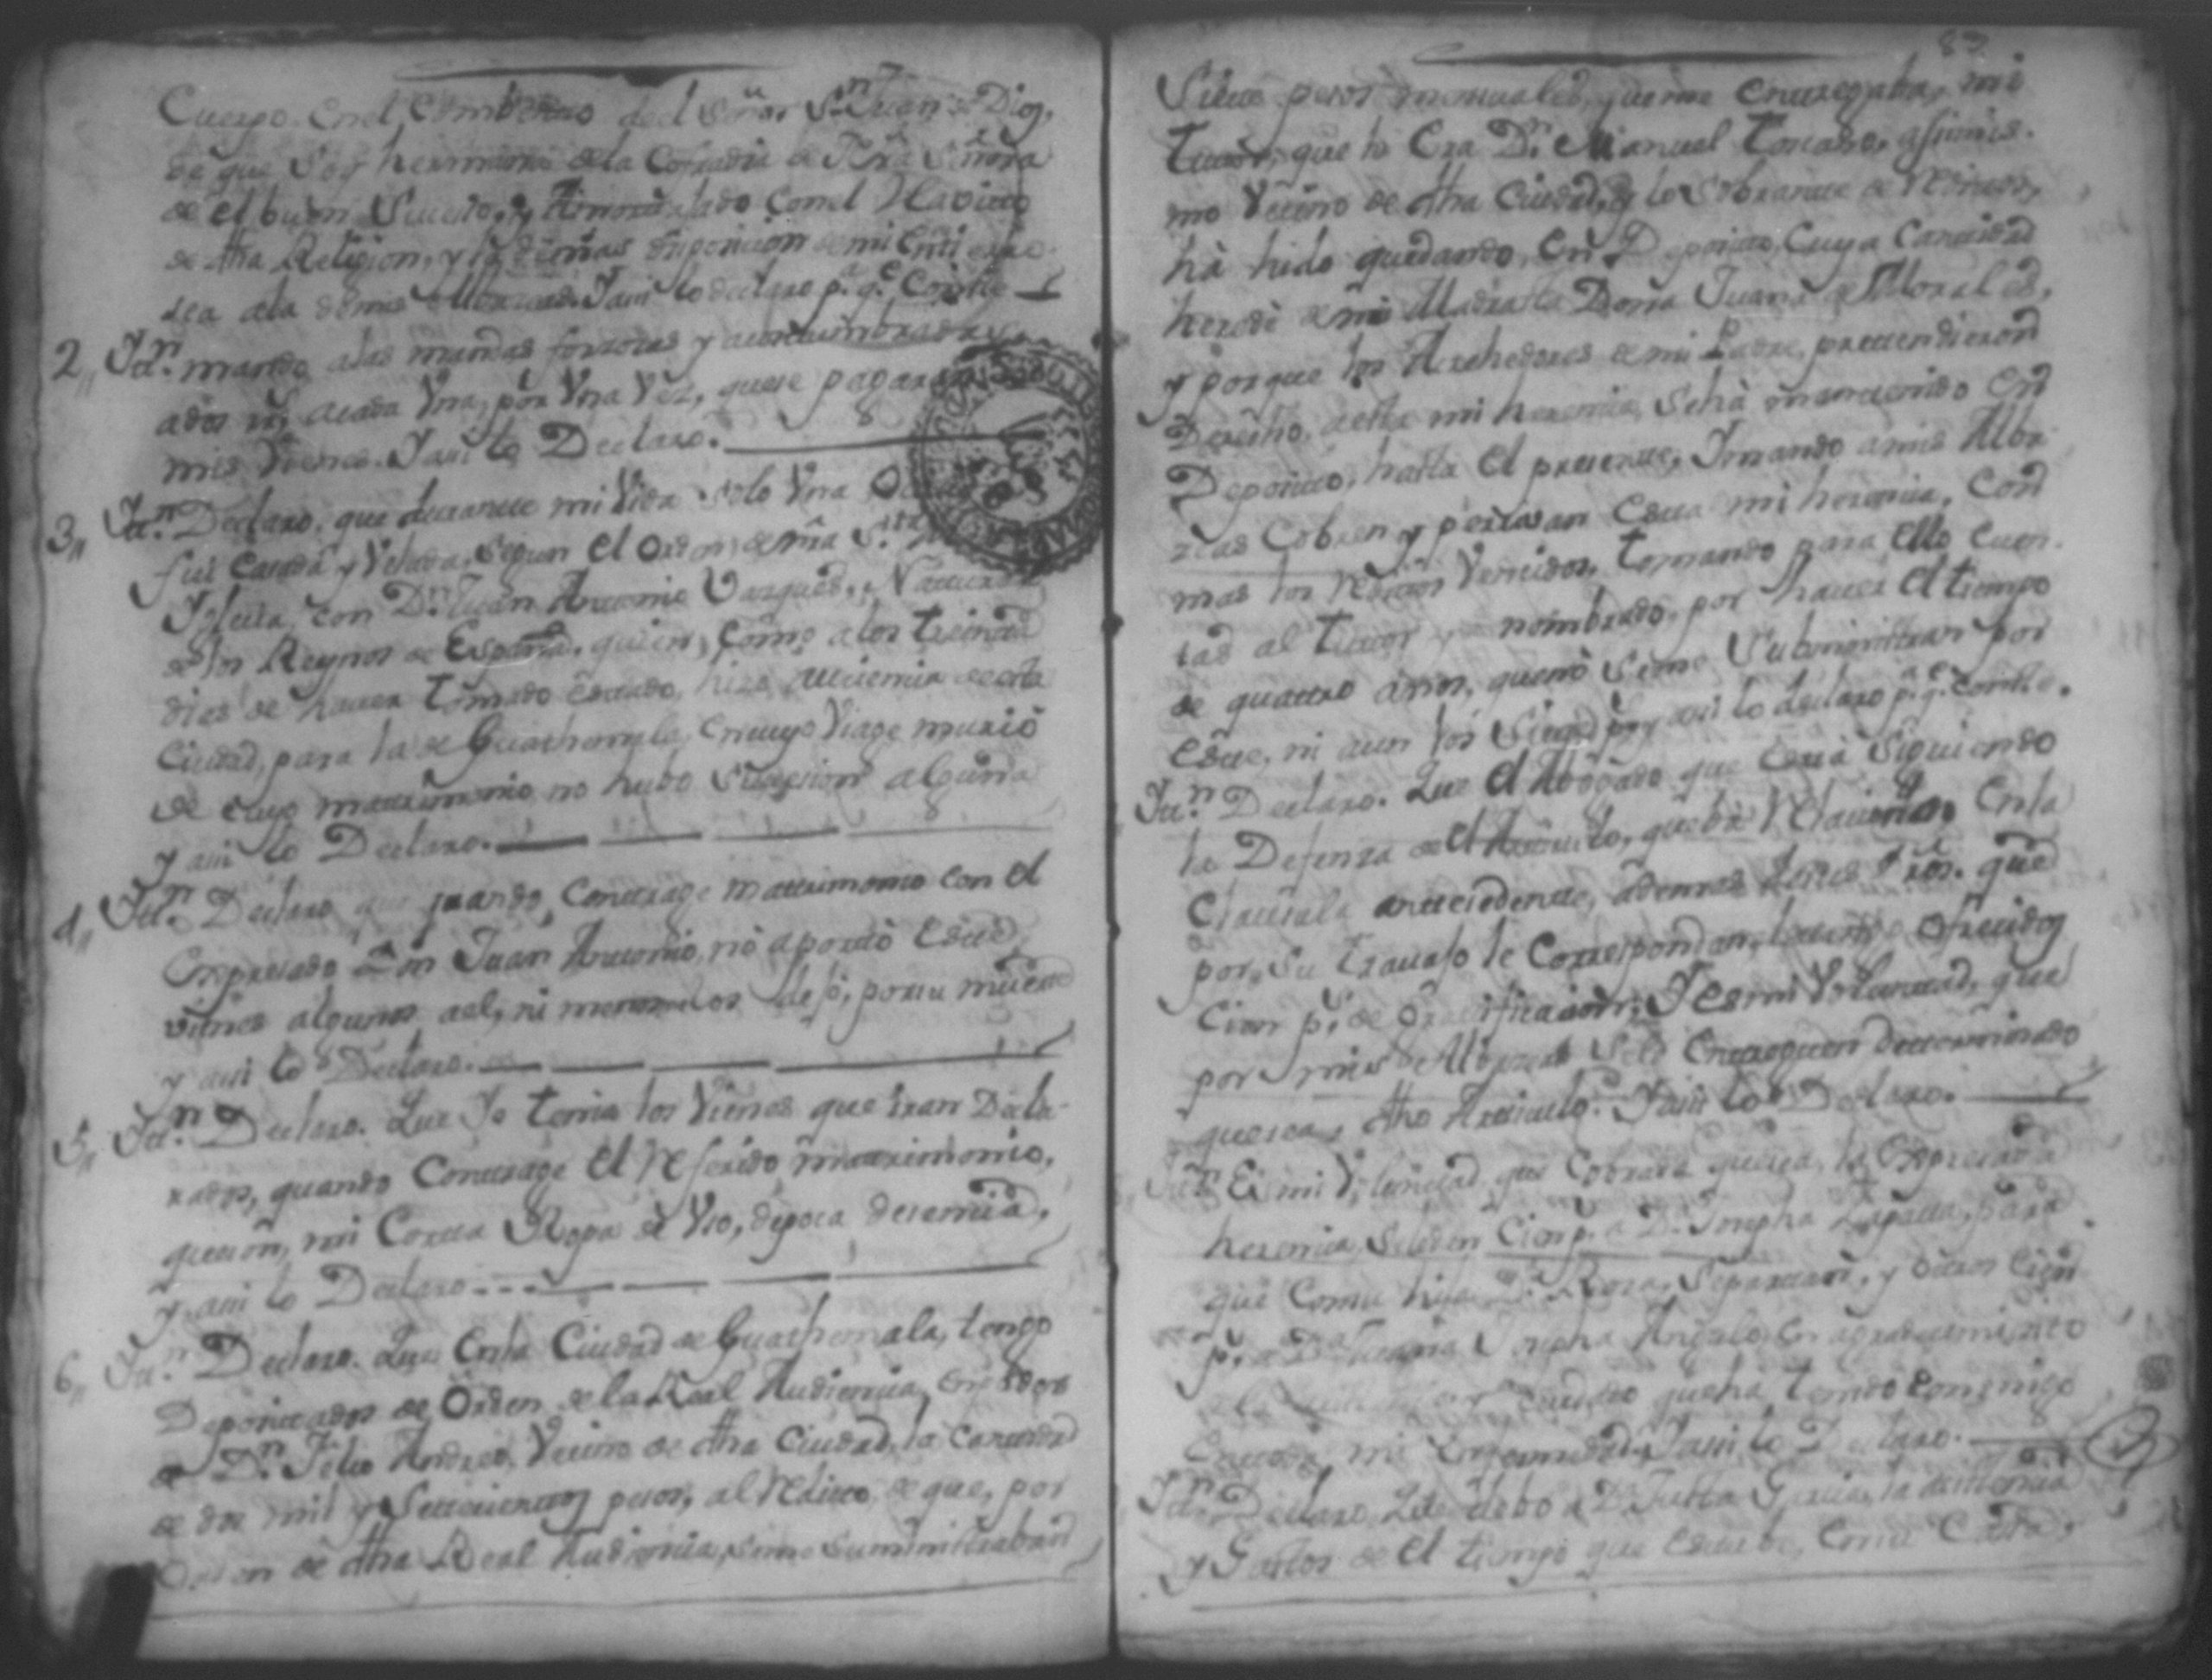 Cuerpo en el combento de el Señor Sn. Juan de Dios,
de que Soy hermana de la Cofradia de Nrã Señora
de el buen Suceso, y Amortajado con el Havito
de dha Religion, y la demas disposicion de mi Entierro
sea a la de mis Albaceas. Y assi lo declaro pa. qe. Conste
2,, Itn. mando a las mandas forzosas y acostumbradas
a dos rs. a cada Una, por Una Vez, que se pagaran
mis Vienes. Y assi lo Declaro.
3,, Itn. Declaro, que durante mi Vida solo Una
fui Casada y Velada, Segun el Orden, de nrã Sta.
Iglesia, con Dn. Juan Antonio Vasques, Natural
de los Reynos de España, quien, como a los treinta
dias de haver tomado estado, hizo Auciencia de esta
Ciudad, para la de Guathemala, en cuyo Viage murió
de cuyo matrimonio no hubo Sucesion alguna
y assi lo Declaro.
4,, Itn. Declaro que quando Contrage matrimonio con el
Expresado Don Juan Antonio, nó aportó Este
vienes algunos a el, ni menos los dejó, por su muerte
y assi lo Declaro.
5,, Itn. Declaro. Que Yo tenia los Vienes que iran Decla-
rados, quando Contrage el Referido matrimonio,
que son, mi Corta Ropa de Uso, de poca decencia,
y assi lo Declaro
6,, Itn. Declaro. Que En la Ciudad de Guathemala, tengo
Depositados de Orden de la Real Audiencia, en poder
de Dn. Felis Andres, Vecino de dha Ciudad, la Cantidad
de dos mil y Setecientos pesos, al Redito, de que, por
Orden de dha Real Audiencia, se me Suministraban
83
Siete pesos mensuales, que me Entregaba, mi
tutor, que lo Era Dn. Manuel Toscano, assimis-
mo Vecino de dha Ciudad, y lo Sobrante de Reditos,
há hido quedando, En Deposito, Cuya Cantidad
heredé de mi Madrasta Doña Juana de Morales,
y porque los Acrehedores de mi Padre, pretendieron
Derecho, a esta mi herencia, Se há mantenido En
Deposito, hasta el presente, Y mando a mis Alba-
zeas Cobren y persivan Esta mi herencia, Con
mas los Reditos Vencidos, tomando para Ello Cuen-
tas al tutor nombrado, por haver el tiempo
de quatro años, que nó Se me Subministran por
Este, ni aun los Siete ps. y assi lo declaro pa. qe. conste.
Itn. Declaro. Que el Abogado que Está Siguiendo
la Defenza de el Asumpto, que bá Relacionado En la
Clausula antecedente, además de los dros. que
por Su travajo le Correspondan, le tengo ofrecidos
Cien ps. de Gratificacion, Y es mi Voluntad, que
por mis Albaceas Se le Entreguen determinado
que sea, dho Articulo. Y assi lo Declaro.
Itn. Es mi Voluntad que Cobrada que sea, la Expresada
herencia, Se le den Cien ps. a Da. Josepha Zapata, para
que Con su hija Da. Rosa, Se partan, y otros Cien
ps. a Da. Juana Josepha Angulo, En agradecimiento
de la y Cuidado que ha tenido Conmigo
En toda mi Enfermedad, Y assi lo Declaro.
Itn. Declaro Que debo a Da. Justa Garcia, la asistencia
y Gastos de el tiempo que Estube, En su Casa,